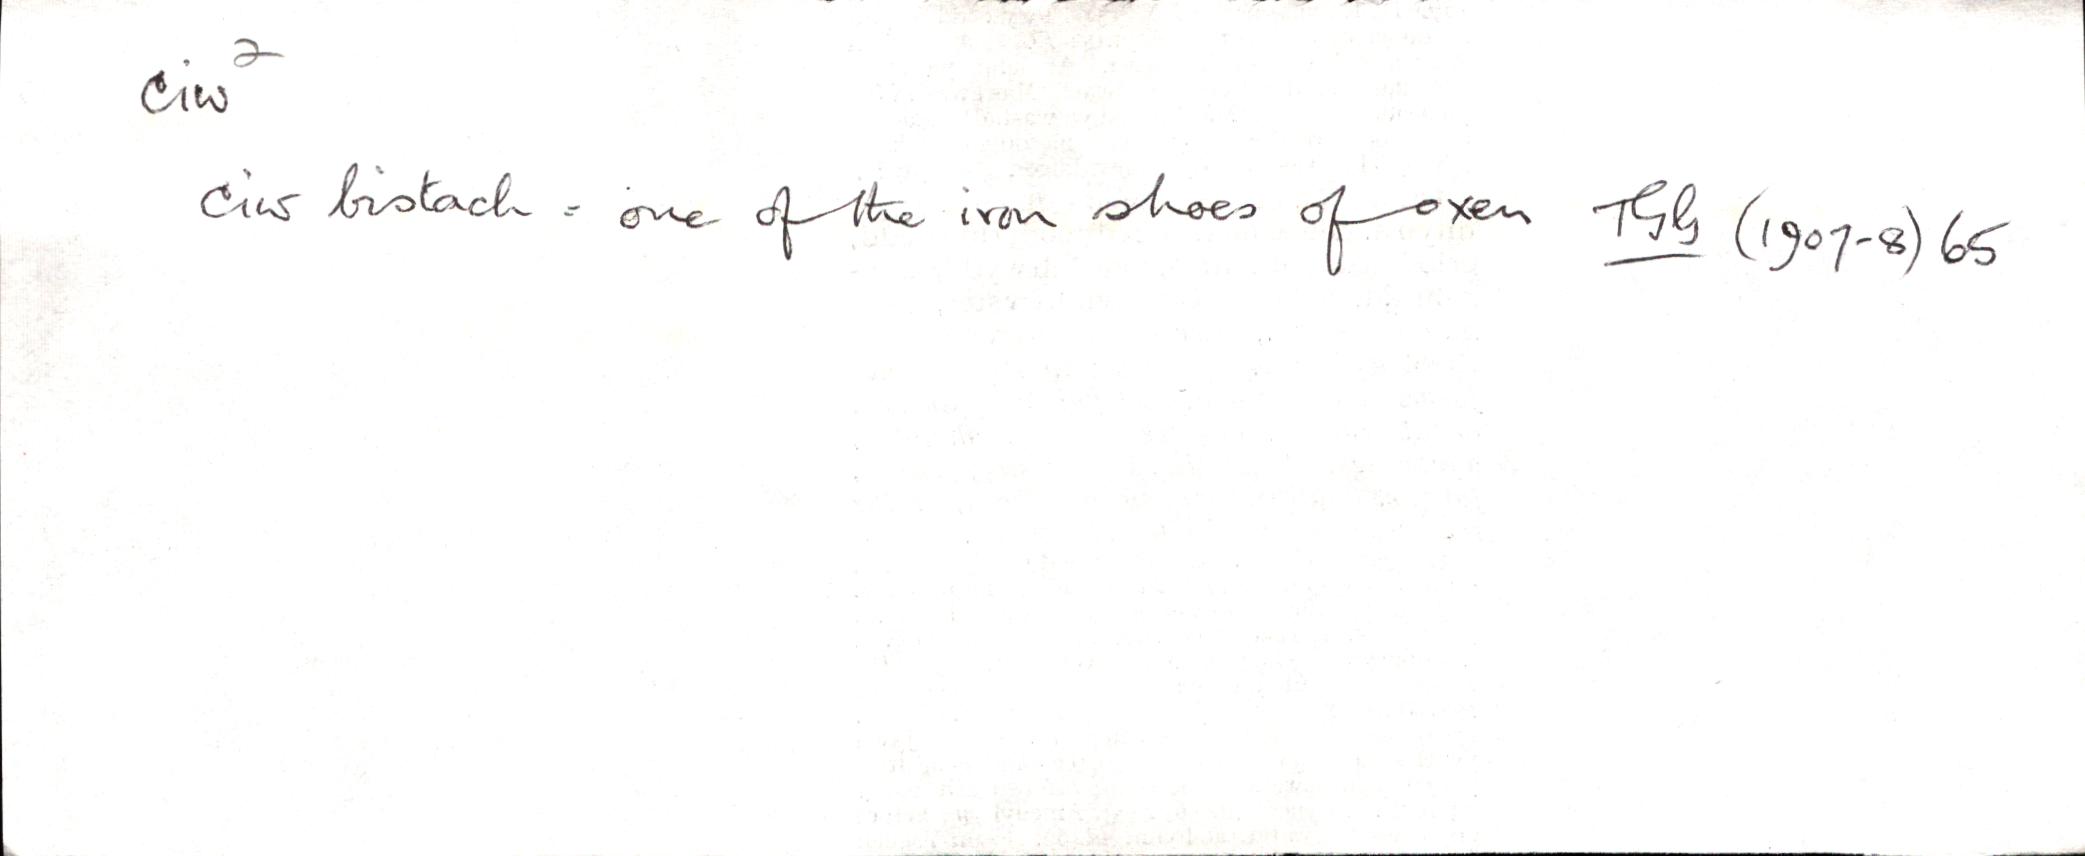 ciw²
ciw bistach = one of the iron shoes of oxen TGG (1907-8) 65